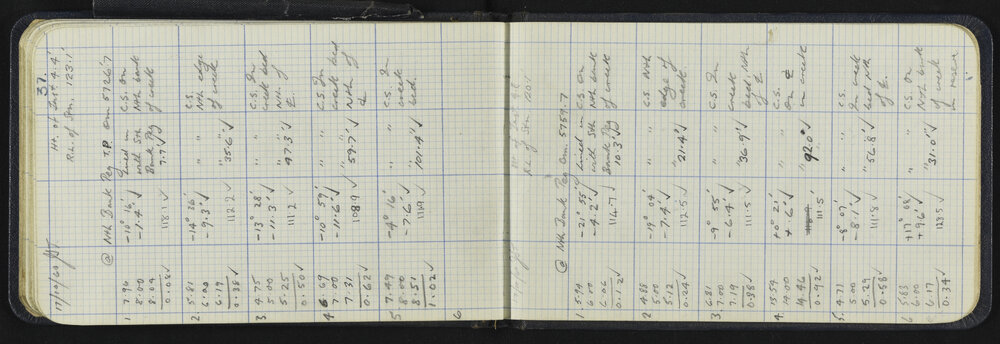 17/10/60 Ht. of Inst 4.4' 37.
R.L. of Stn. 123.1'
@ Nth Bank Peg T.P. Om. 5726.7
1 7.96 -10° 16' Lined in C.S. On
8.00 -1.4' ✓ with Sth Nth bank
8.04 Bank Peg of creek
0.08 ✓ 118.1 ✓ 7.7' ✓
2 5.81 -14° 36' " C.S.
6.00 -9.3' ✓ " Nth edge
6.19 of creek
0.38 ✓ 112.2 ✓ 35.6' ✓
3 4.75 -13° 28' " C.S. In
5.00 -11.3' ✓ " creek bed
5.25 Nth of
0.50 ✓ 111.2 ✓ 47.3' ✓ ℄.
4 6.69 -10° 59' " C.S. In
7.00 -11.6' ✓ " creek bed
7.31 Nth of
0.62 ✓ 108.9 ✓ 59.7' ✓ ℄
5 7.49 -4° 16' " C.S. In
8.00 -7.6' ✓ " creek
8.51 bed.
1.02 ✓ 111.9 ✓ 101.4' ✓
6
R.L. of Stn 120.1
@ Nth Bank Peg Om. 5759.7
1. 5.94 -21° 55' Lined in C.S. On
6.00 -4.2' ✓ with Sth Nth bank
6.06 Bank Peg of creek
0.12 ✓ 114.7 ✓ 10.3' ✓
2 4.88 -19° 04' " C.S. Nth
5.00 -7.4' ✓ " edge of
5.12 creek
0.24 ✓ 112.5 ✓ 21.4' ✓
3. 6.81 -9° 55' " C.S. In
7.00 -6.4' ✓ " creek
7.19 bed, Nth
0.38 ✓ 111.5 ✓ 36.9' ✓ of ℄.
4. 13.54 +0° 21' " C.S.
14.00 + .6' ✓ " On ℄
14.46 in creek
0.92 ✓ 111.5 ✓ 92.0' ✓
5. 4.71 -8° 07' " C.S.
5.00 -8.1' ✓ " In creek
5.29 bed Nth
0.58 ✓ 111.8 ✓ 56.8' ✓ of ℄.
6 5.83 +17° 08' " C.S. On
6.00 +9.6 ✓ " Nth bank
6.17 of creek
0.34 ✓ 128.5 ✓ 31.0' ✓